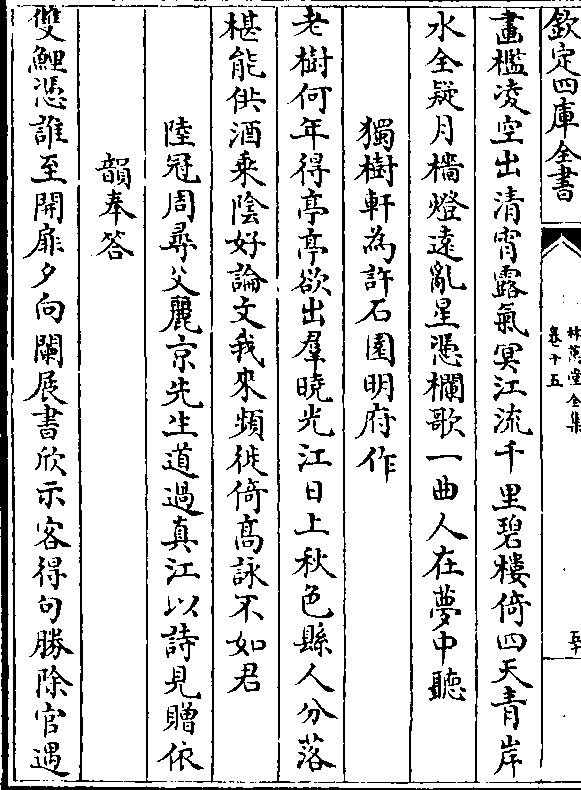 欽定四庫全書
林蕙堂全集
卷十五
畫檻凌空出清宵露氣冥江流千里碧樓倚四天青岸
水全疑月檣燈遠亂星憑欄歌一曲人在夢中聽
獨樹軒為許石園明府作
老樹何年得亭亭欲出羣曉光江日上秋色縣人分落
椹能供酒乘陰好論文我來頻徙倚高詠不如君
陸冠周尋父麗京先生道過真江以詩見贈依
韻奉答
雙鯉憑誰至開扉夕向闌展書欣示客得句勝除官遇